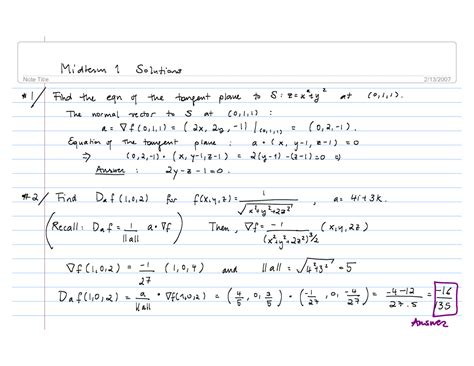 Midterm 1 Solutions
Note Title 2/13/2007
#1/ Find the eqn of the tangent plane to S: z=x²+y² at (0,1,1).
The normal vector to S at (0,1,1):
a = ∇f(0,1,1) = (2x, 2y, -1)|(0,1,1) = (0,2,-1).
Equation of the tangent plane: a · (x, y-1, z-1) = 0
⇒ (0,2,-1) · (x, y-1, z-1) = 2(y-1) -(z-1) = 0
Answer: 2y-z-1=0.
#2/ Find Daf(1,0,2) for f(x,y,z) = 1/√(x²+y²+2z²), a = 4i+3k.
(Recall: Daf = 1/||a|| a·∇f) Then, ∇f = -1/(x²+y²+2z²)^3/2 (x,y,2z)
∇f(1,0,2) = -1/27 (1,0,4) and ||a|| = √(4²+3²) = 5
Daf(1,0,2) = a/||a|| · ∇f(1,0,2) = (4/5, 0, 3/5) · (-1/27, 0, -4/27) = (-4-12)/(27·5) = -16/135
Answer